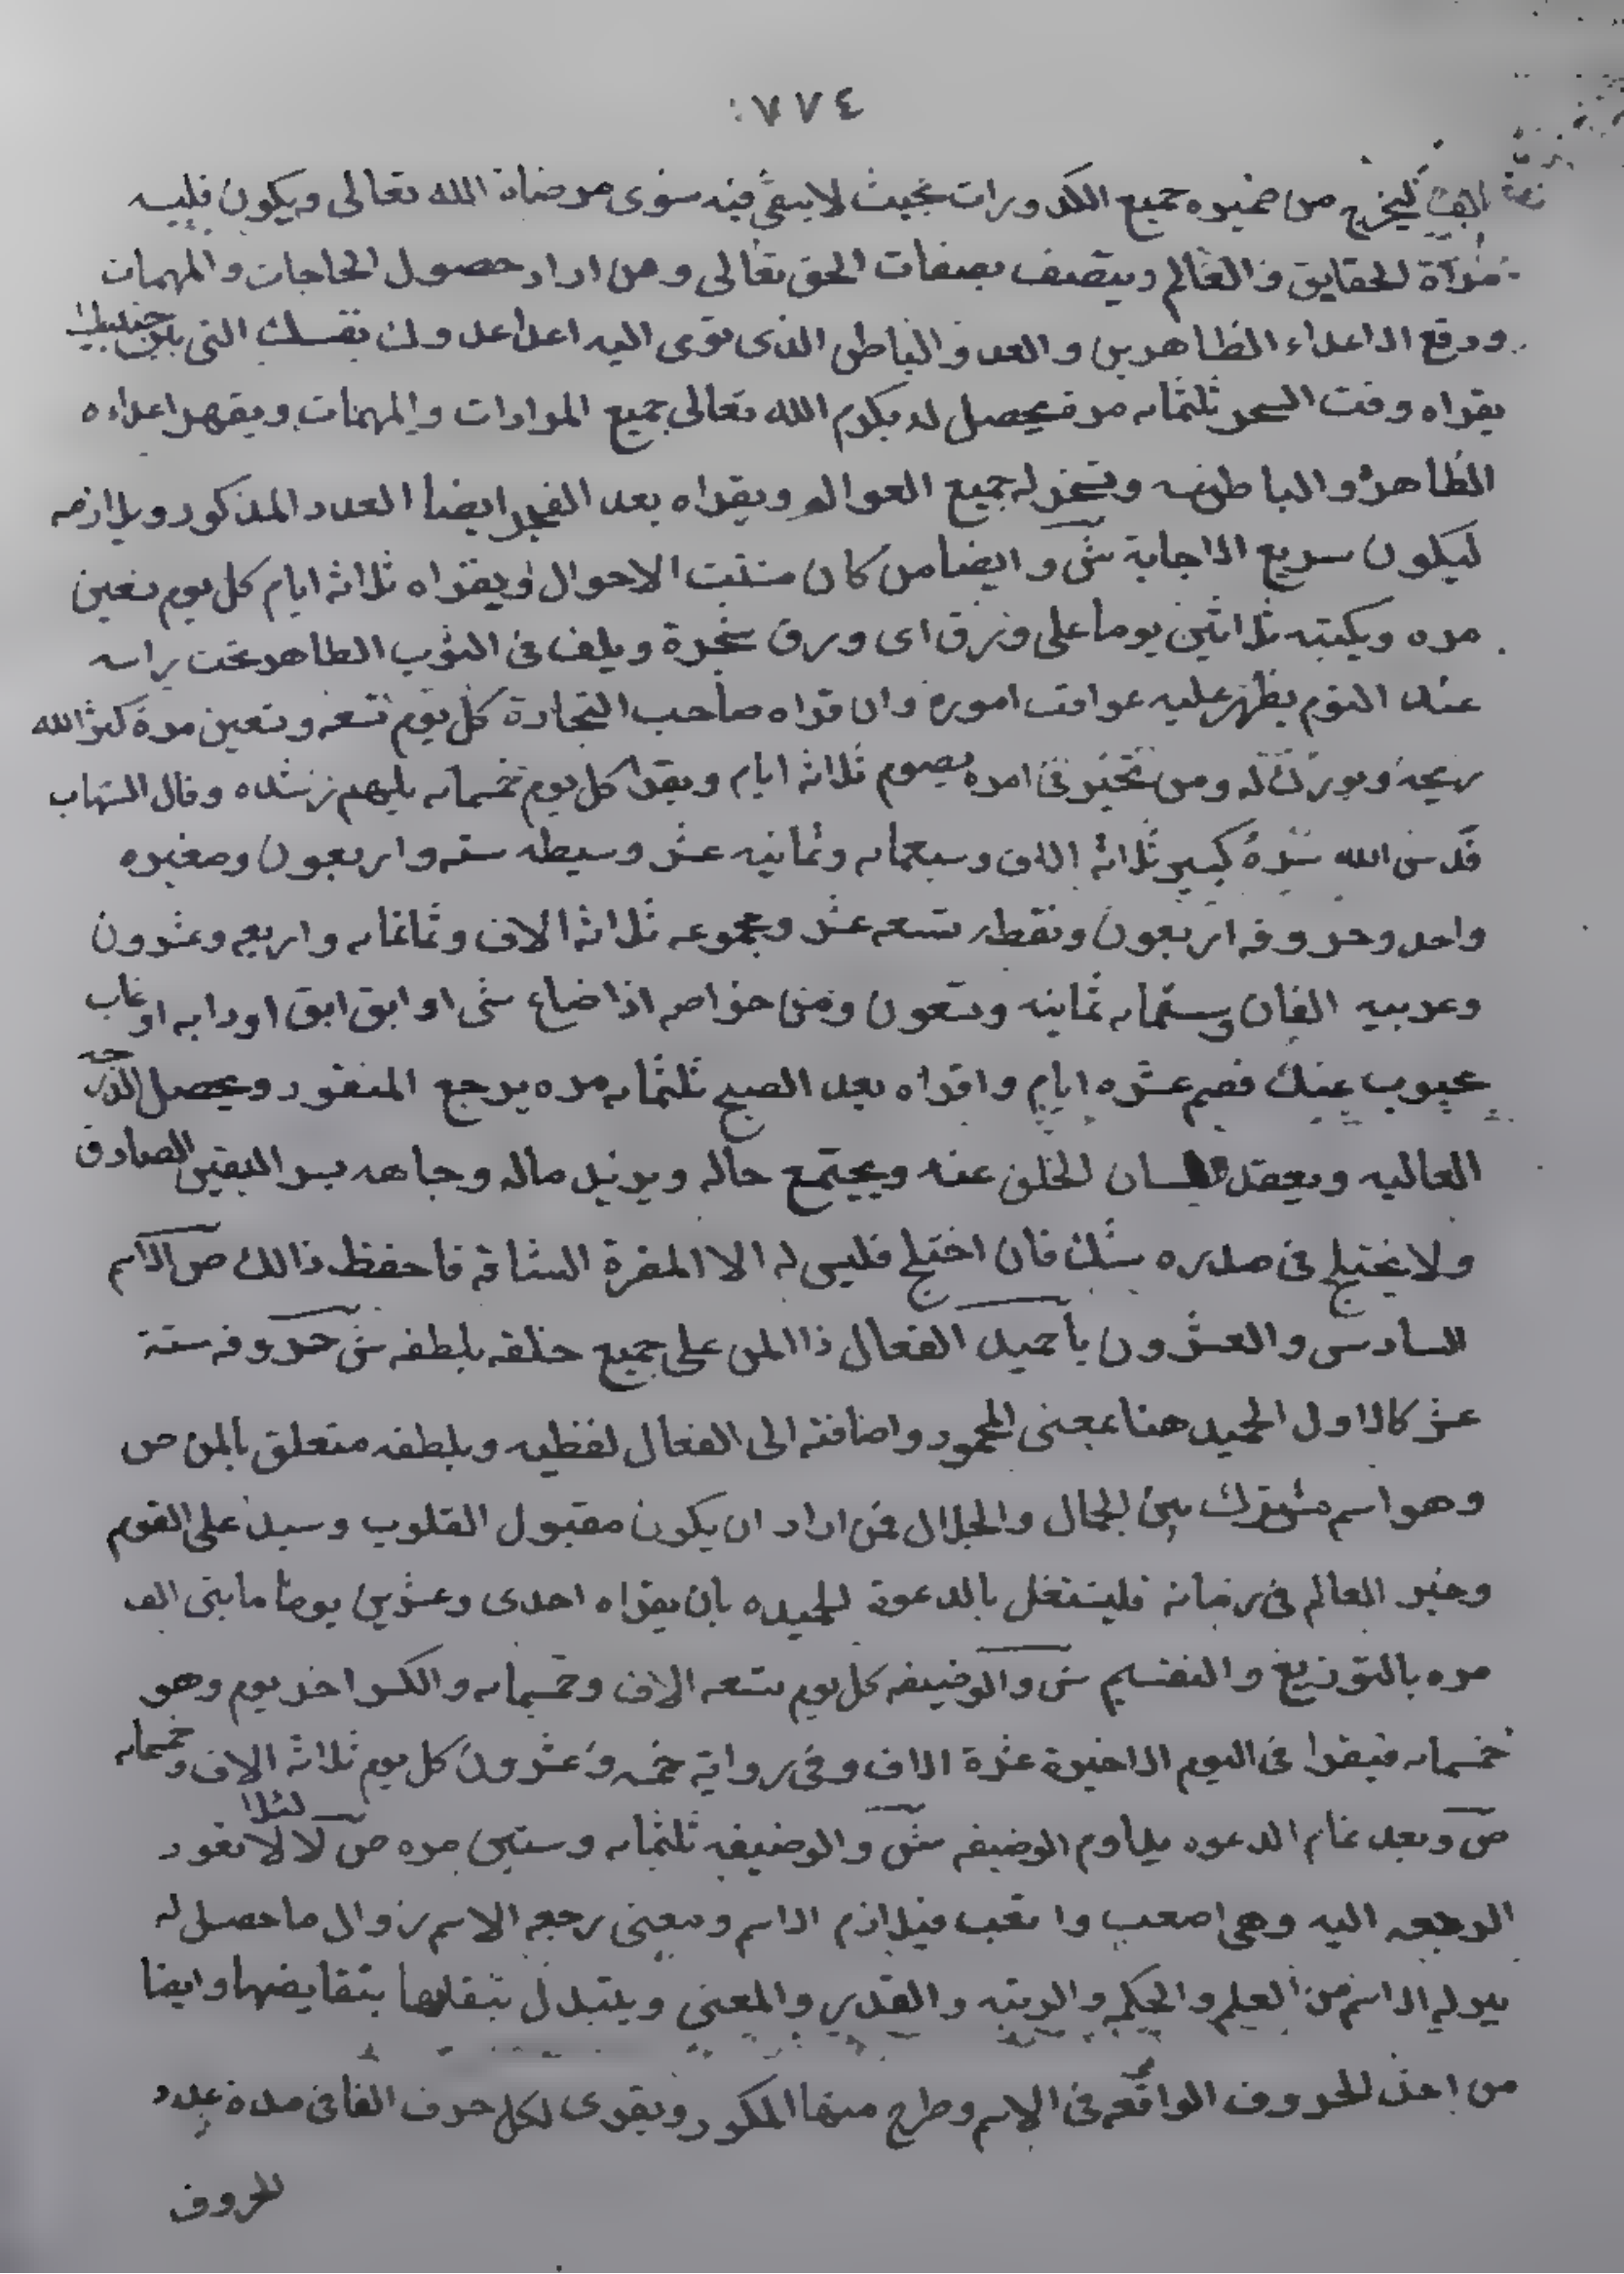 ٧٧٤
ليخرج من ضميره جميع الكدورات بحيث لا يبقى فيه سوى مرضاة الله تعالى ويكون قلبه
مرآة لحقايق العالم ويتصف بصفات الحق تعالى ومن اراد حصول الحاجات والمهمات
ودفع الاعداء الظاهرين والعدو الباطن الذى نوى اليه اعدا عدوك نفسك التى بين جنبيك
يقراه وقت السحر ثلثمايه مره يحصل له بكرم الله تعالى جميع المرادات والمهمات ويقهر اعداءه
الظاهره والباطنيه وتسخر له جميع العوالم ويقراه بعد الفجر ايضا العدد المذكور ويلازمه
ليكون سريع الاجابة ش وايضا من كان متشتت الاحوال ويقراه ثلاثه ايام كل يوم تسعين
مره ويكتبه ثلاثين يوما على ورق اى ورق شجرة ويلف فى الثوب الطاهر تحت راسه
عند النوم يظهر عليه عواقب اموره وان قراه صاحب التجارة كل يوم تسعه وتسعين مرة كثر الله
ربحه وبورك له ومن تحير فى امره يصوم ثلاثه ايام ويقرا كل يوم خمسمايه يلهم رشده وقال الشهاب
قدس الله سره كبير ثلاثه الاف وسبعمايه وثمانيه عشر وسيطه سته واربعون وصغيره
واحد وحروفه اربعون ونقطه تسعه عشر ومجموعه ثلاثه الاف وثمانمايه واربعه وعشرون
وعربيه الفان وستمايه ثمانيه وتسعون ومن خواصه اذا ضاع شى او ابق ابق او دابه او غاب
محبوب عنك فصم عشره ايام واقراه بعد الصبح ثلثمايه مره يرجع المفقود ويحصل الدرجه
العاليه ويعقد لسان الخلق عنه ويجتمع حاله ويزيد ماله وجاهه بسر اليقين الصادق
ولا يختلج فى صدره شك فان اختلج فليس له الا المضرة الشاقه فاحفظ ذالك ص الاسم
السادس والعشرون يا حميد الفعال ذا المن على جميع خلقه بلطفه ش حروفه ستة
عشر كالاول الحميد هنا بمعنى المحمود واضافته الى الفعال لفظيه وبلطفه متعلق بالمن ص
وهو اسم مشترك بين الجمال والجلال فمن اراد ان يكون مقبول القلوب وسيد على القوم
وخير العالم فى زمانه فليشتغل بالدعوة الحميده بان يقراه احدى وعشرين يوما مايتى الف
مره بالتوزيع والتقسيم ش والوضيفه كل يوم تسعه الاف وخمسمايه والكسر اخر يوم وهو
خمسمايه فيقرا فى اليوم الاخيرة عشرة الاف وفى رواية خمسه وعشرون كل يوم ثلاثه الاف وخمسمايه
ص وبعد تمام الدعوه يداوم الوضيفه ش والوضيفه ثلثمايه وستين مره ص لئلا لا تعود
الرجعه اليه وهى اصعب واتعب فيلازم الاسم ومعنى رجعه الاسم زوال ما حصل له
ببركه الاسم من العلم والحكم والرتبه والقدر والمعنى ويتبدل بنقايضها وايضا
من اخذ الحروف الواقعه فى الاسم وطرح منها المكرر ويقرى لكل حرف الفا فى مدة عدد
الحروف